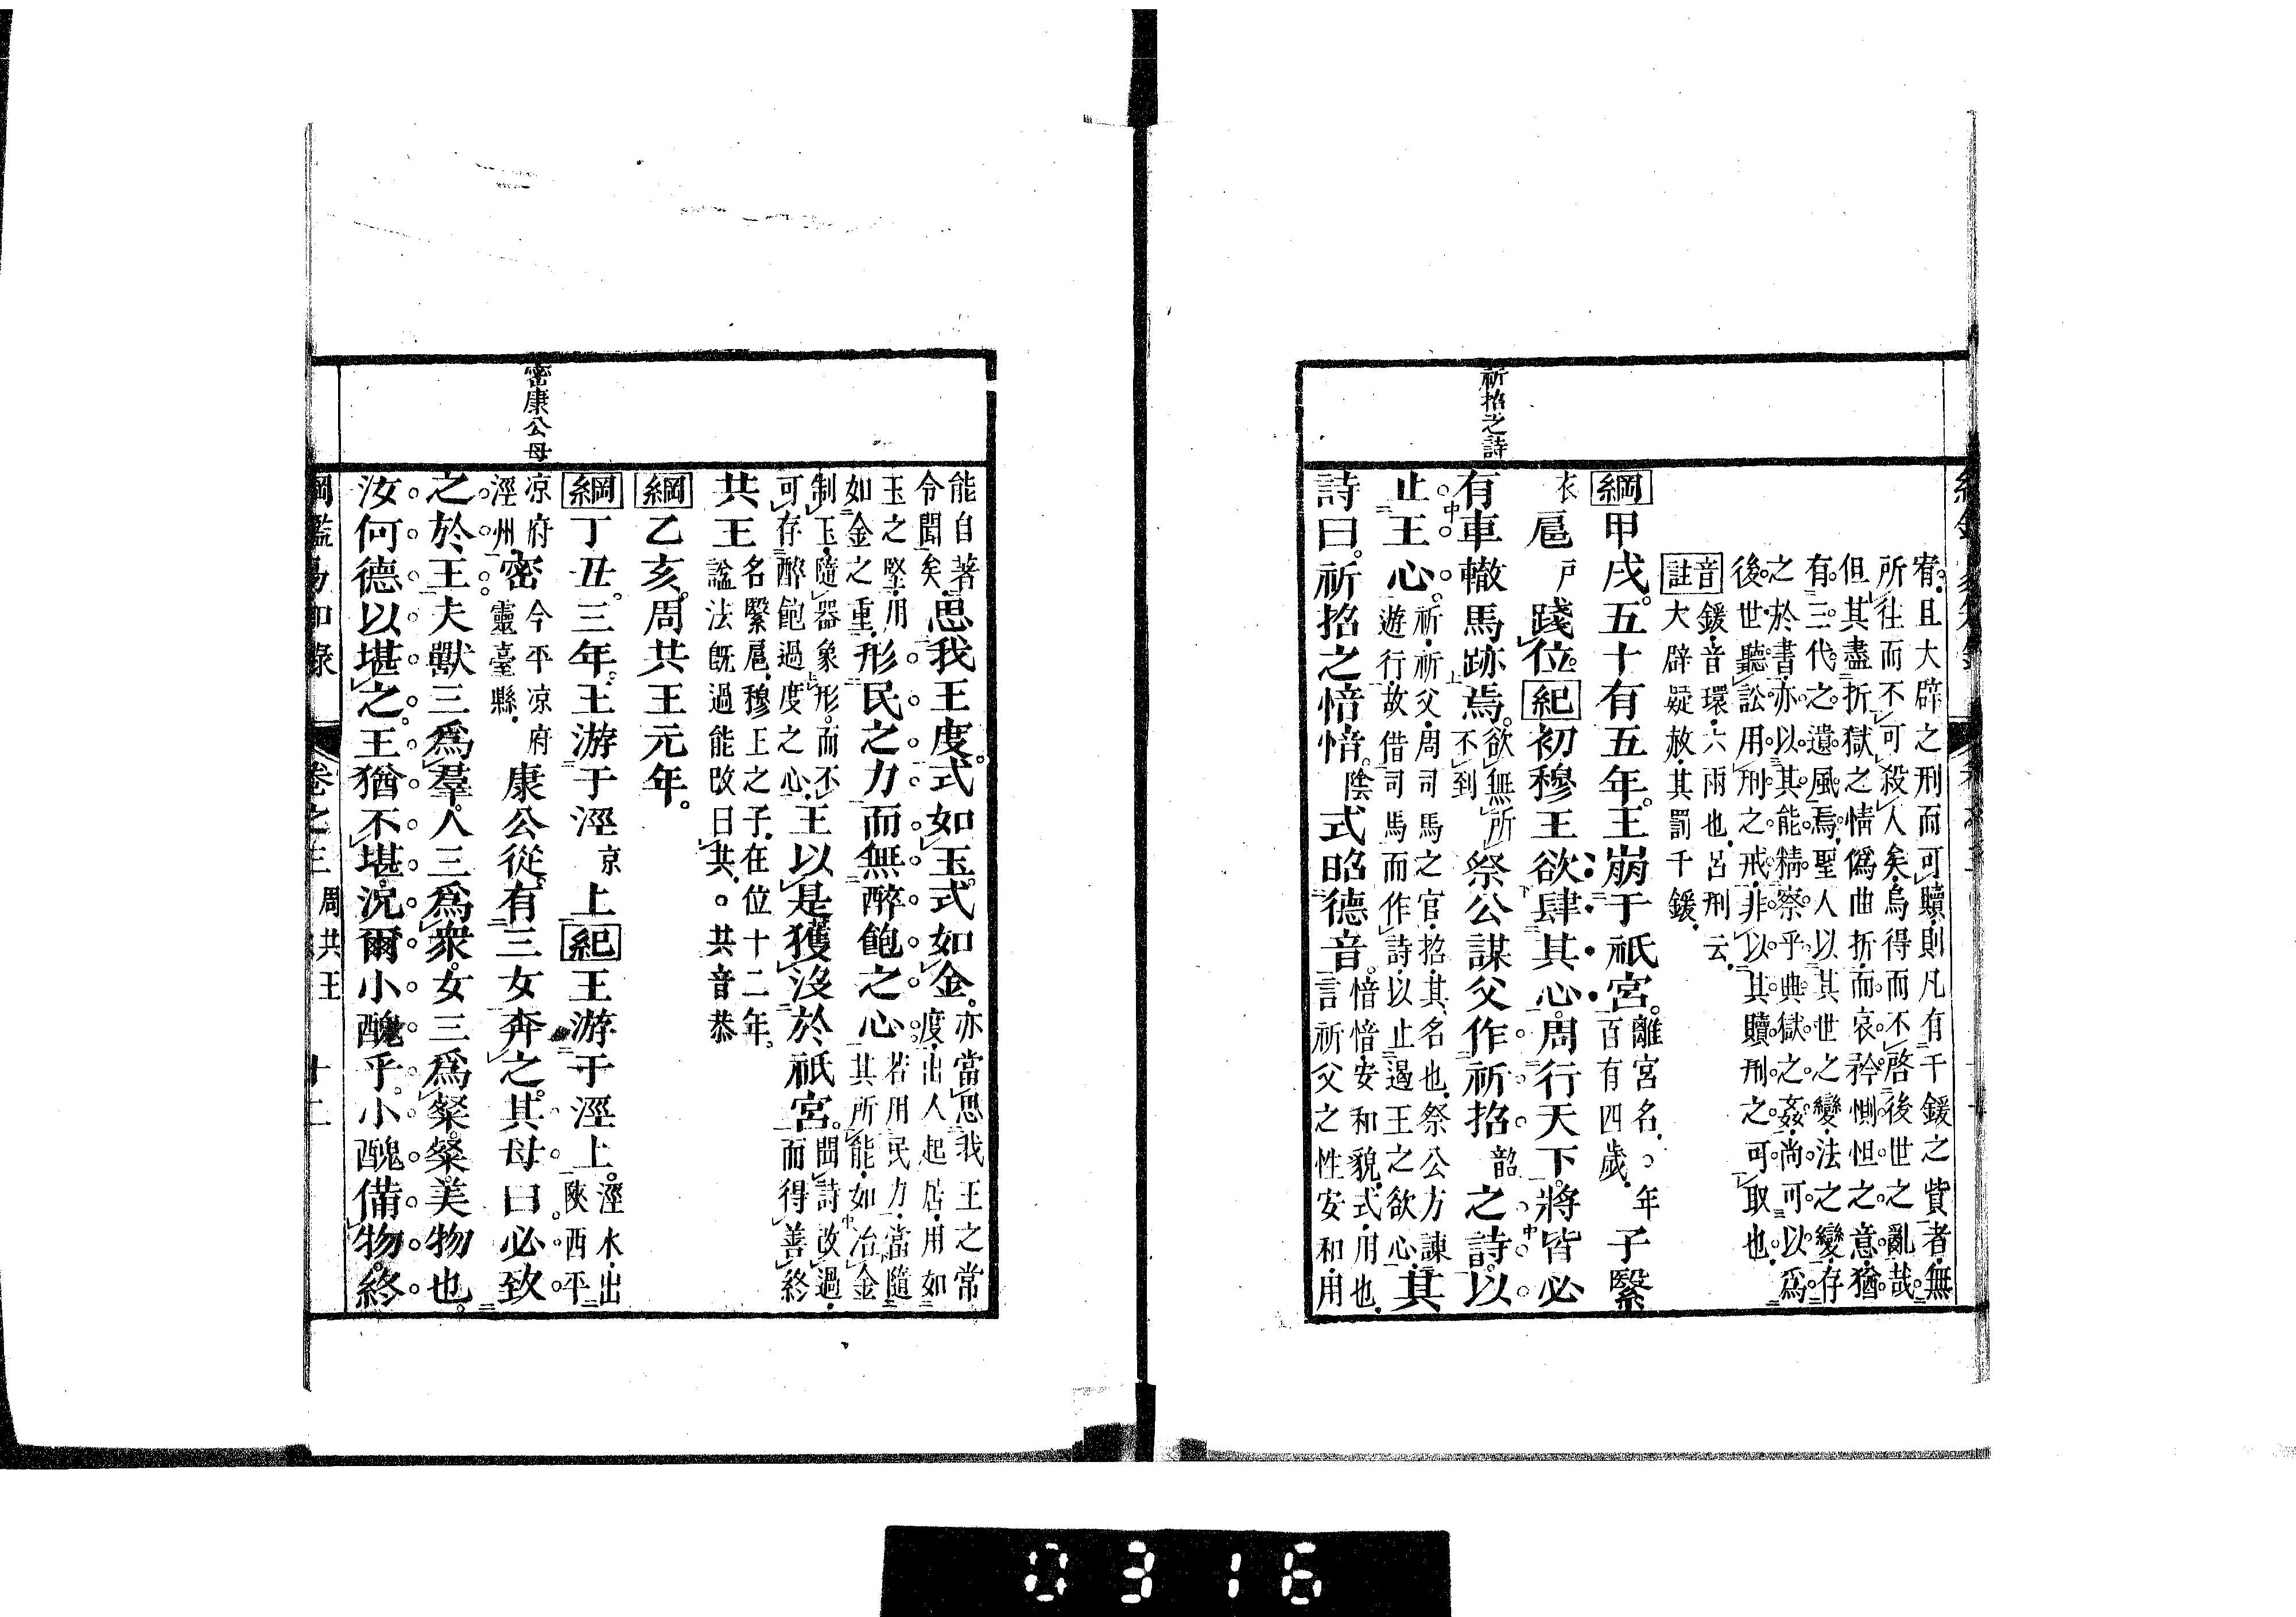 祈招之詩
宥。且大辟之刑而可贖。則凡有千鍰之貲者。無
所往而不可殺人矣。烏得而不啓後世之亂哉。
但其盡折獄之情僞曲折。而哀矜惻怛之意。猶
有三代之遺風焉。聖人以其世之變。法之變。存
之於書。亦以其能精察乎典獄之姦。尚可以爲
後世聽訟用刑之戒。非以其贖刑之可取也。
音註 鍰音環。六兩也。呂刑云。
大辟疑赦。其罰千鍰。
綱甲戌。五十有五年。王崩于祇宮。離宮名。年百有四歲。子繄
衣扈戸踐位。紀初穆王欲肆其心。周行天下。將皆必
有車轍馬跡焉。欲無所不到祭公謀父作祈招韶之詩。以
止王心。祈。祈父。周司馬之官。招。其名也。祭公方諫遊行。故借司馬而作詩。以止遏王之欲心。其
詩曰。祈招之愔愔。陰式昭德音。愔愔。安和貌。式。用也。言祈父之性安和。用
密康公母
能自著令聞矣。思我王度。式如玉。式如金。亦當思我王之常度。出入起居。用如
玉之堅。用如金之重。形民之力而無醉飽之心。若用民力。當隨其所能。如冶金
制玉。隨器象形。而不可存醉飽過度之心。王以是獲沒於祇宮。聞詩改過。而得善終
共王名繄扈。穆王之子。在位十二年。諡法既過能改曰共。共音恭
綱乙亥。周共王元年。
綱丁丑。三年。王游于涇京上紀王游于涇上。涇水。出陝西平
凉府涇州。密今平凉府靈臺縣。康公從。有三女奔之。其母曰必致
之於王。夫獸三爲羣。人三爲衆。女三爲粲。粲。美物也。
汝何德以堪之。王猶不堪。況爾小醜乎。小醜備物。終
綱鑑易知錄 卷之三 周共王 十二
0316